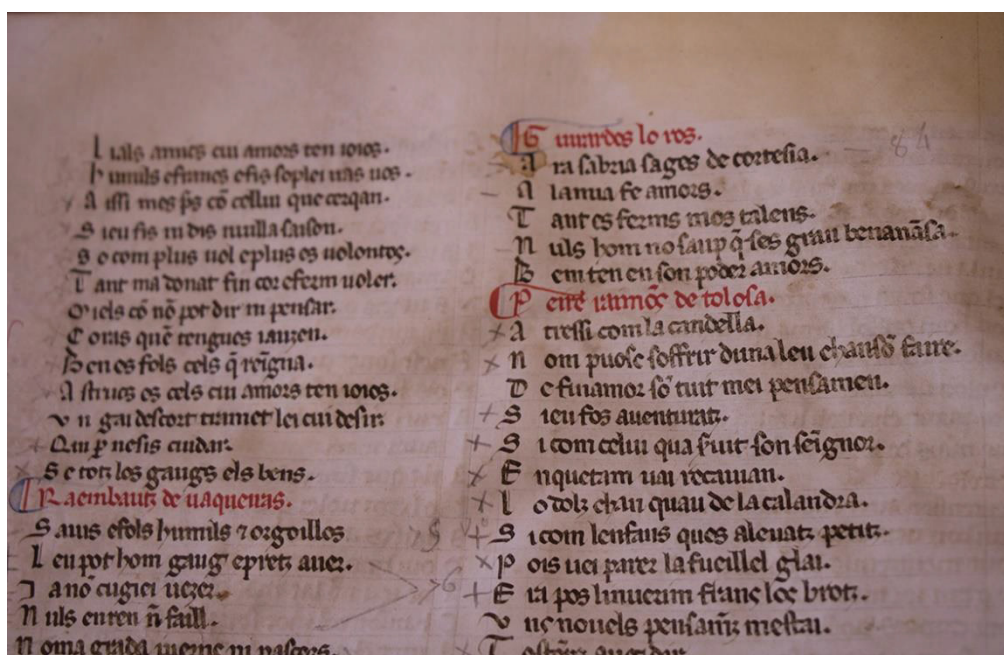 Lials amics cui amors ten ioios.
humils efrancs efis soplei uas uos.
A issi mes p̄s cō celluı que cerqan.
S ieu fis ni dis nuilla saison.
S e com plus uol eplus es uolontos.
T ant ma donat fin cor eferm uoler.
O iels cō nō pot dir ni pensar.
C oras quē tengues iauzen.
B en es fols cels q̄ reigna.
A strucs es cels cui amors ten ioios.
v n gai descort tramet lei cui desir.
Qui p nesis cuidar.
S e totz los gaugs els bens.
Raembautz de uaqueiras.
S auis efols humils ⁊ orgoillos
L eu pot hom gaug epretz auer.
J a nō cugiei uezer.
N uls en ren n̄ faill.
N o magrada iuerns ni pascors.
Guirardos lo ros.
A ra sabria sages de cortesia.
A la mia fe amors.
T ant es ferms mos talens.
N uls hom no saup q̄ ses gran benanāsa.
B em ten en son poder amors.
Peire ramonz de tolosa.
A tressi com la candella.
N om puosc soffrir duna leu chansō faire.
D e fin amor sō tuit mei pensamen.
S ieu fos auenturatz.
S i com celui qua seruit son seignor.
E nqueram uai recaliuan.
L o dolz chan quau de la calandra.
S i com lenfans ques aleuatz petitz.
P ois uei parer la fueillel glai.
E ra pos liuuerns franc los brotz.
V us nouels pensamz mestai.